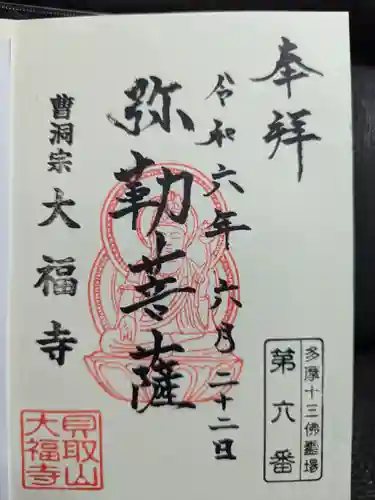 奉拝
多摩十三佛霊場
第六番
令和六年六月二十二日
弥勒菩薩
曹洞宗 大福寺
見取山
大福寺